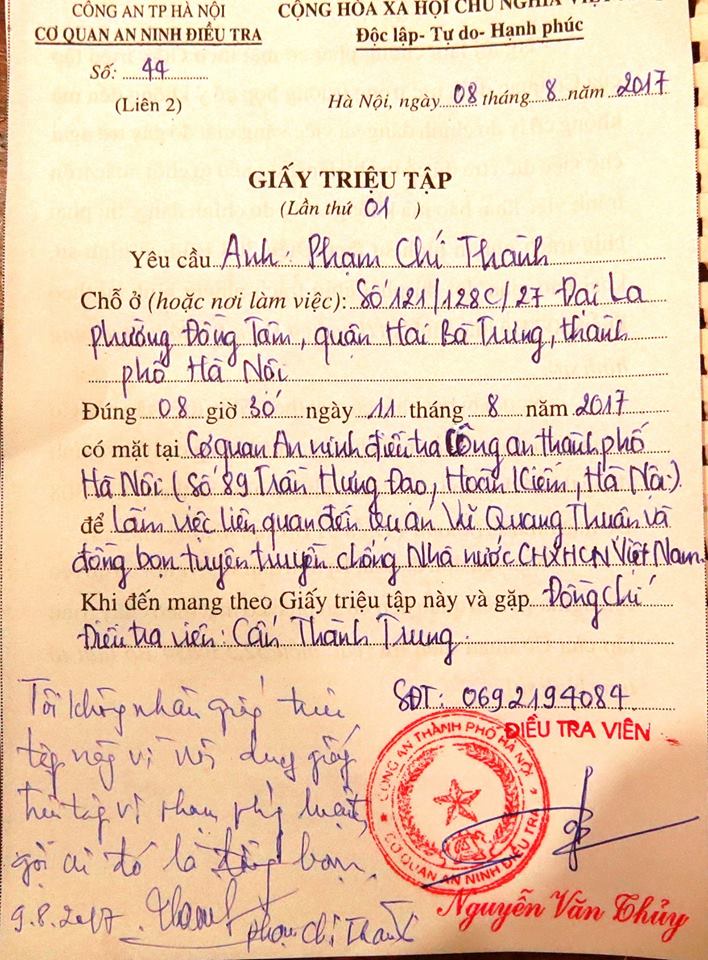 CÔNG AN TP HÀ NỘI
CỘNG HÒA XÃ HỘI CHỦ NGHĨA VIỆT
CƠ QUAN AN NINH ĐIỀU TRA
Độc lập- Tự do- Hạnh phúc
Số: 44
(Liên 2)
Hà Nội, ngày 08 tháng 8 năm 2017
GIẤY TRIỆU TẬP
(Lần thứ 01 )
Yêu cầu Anh: Phạm Chí Thành
Chỗ ở (hoặc nơi làm việc): Số 121/128C/27 Đại La
phường Đồng Tâm, quận Hai Bà Trưng, thành
phố Hà Nội
Đúng 08 giờ 30 ngày 11 tháng 8 năm 2017
có mặt tại Cơ quan An ninh điều tra Công an thành phố
Hà Nội (Số 89 Trần Hưng Đạo, Hoàn Kiếm, Hà Nội)
để làm việc liên quan đến vụ án Vũ Quang Thuận và
đồng bọn tuyên truyền chống Nhà nước CHXHCN Việt Nam.
Khi đến mang theo Giấy triệu tập này và gặp Đồng chí
Điều tra viên: Cấn Thành Trung.
SĐT: 0692194084
ĐIỀU TRA VIÊN
CÔNG AN THÀNH PHỐ HÀ NỘI
CƠ QUAN AN NINH ĐIỀU TRA
Nguyễn Văn Thủy
Tôi không nhận giấy triệu
tập này vì nội dung giấy
triệu tập vi phạm pháp luật,
gọi ai đó là đồng bọn.
9.8.2017. Phạm Chí Thành